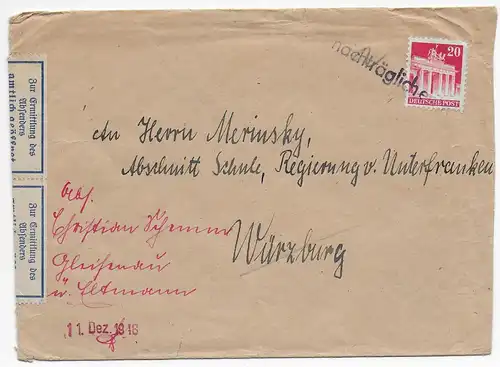 nachträglich
20
DEUTSCHE POST
An Herrn Merinsky,
Abschnitt Schule, Regierung v. Unterfranken
Würzburg
Zur Ermittlung des
Absenders
amtlich geöffnet
Zur Ermittlung des
Absenders
Abs.
Christian
Gleisenau
ü. Eltmann
11. Dez. 1948